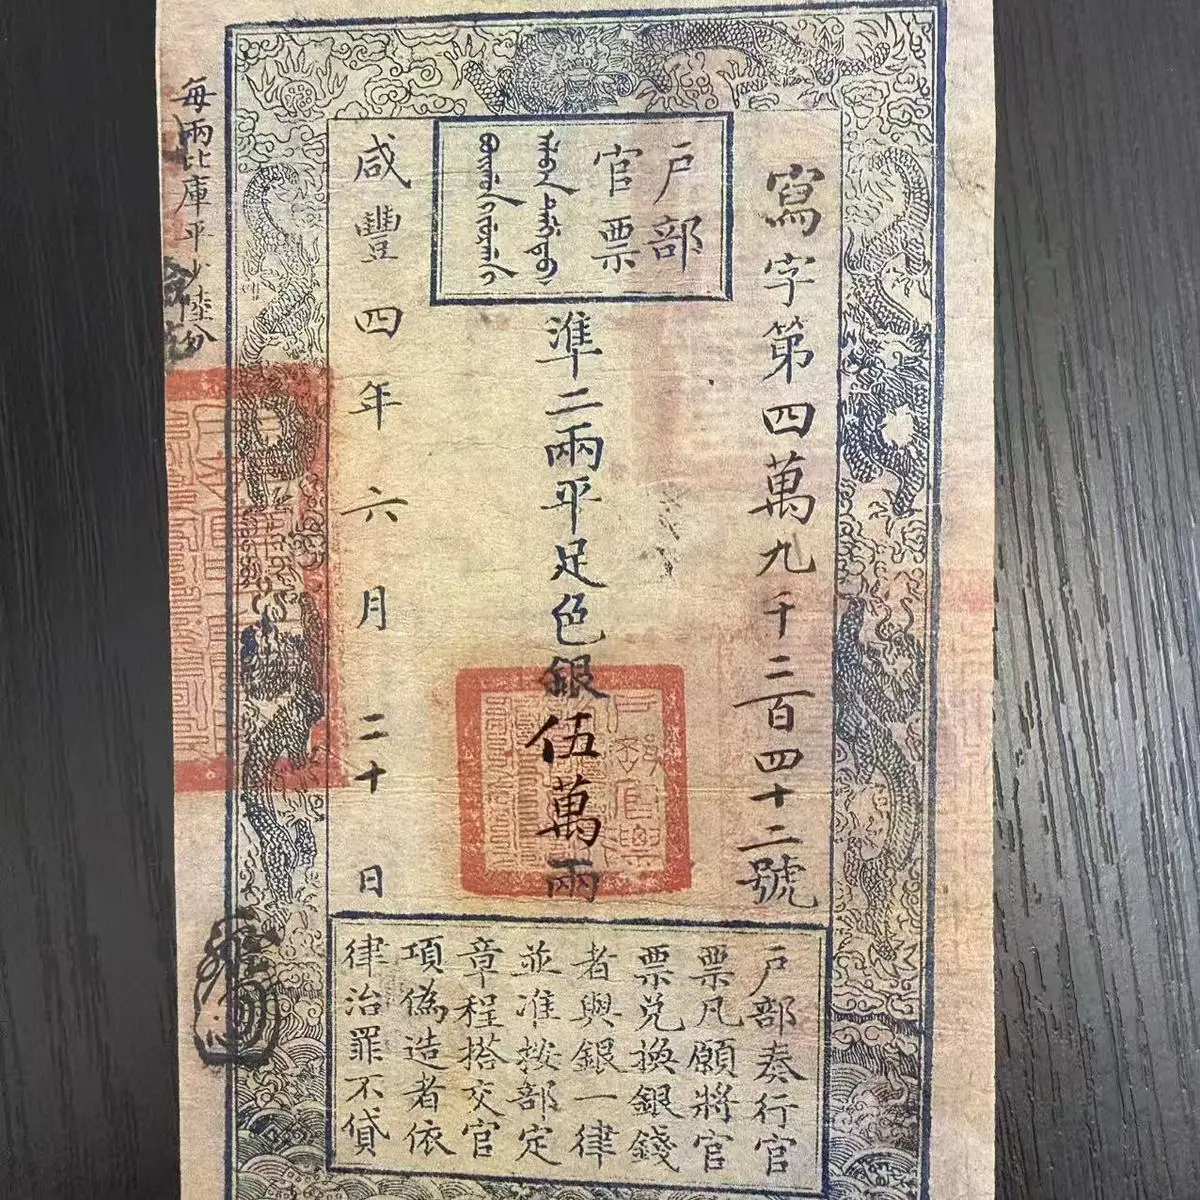 戶部
官票
寫字第四萬九千二百四十二號
準二兩平足色銀伍萬兩
咸豐四年六月二十日
每兩比庫平少陸分
戶部奏行官
票凡願將官
票兌換銀錢
者與銀一律
並准按部定
章程搭交官
項偽造者依
律治罪不貸